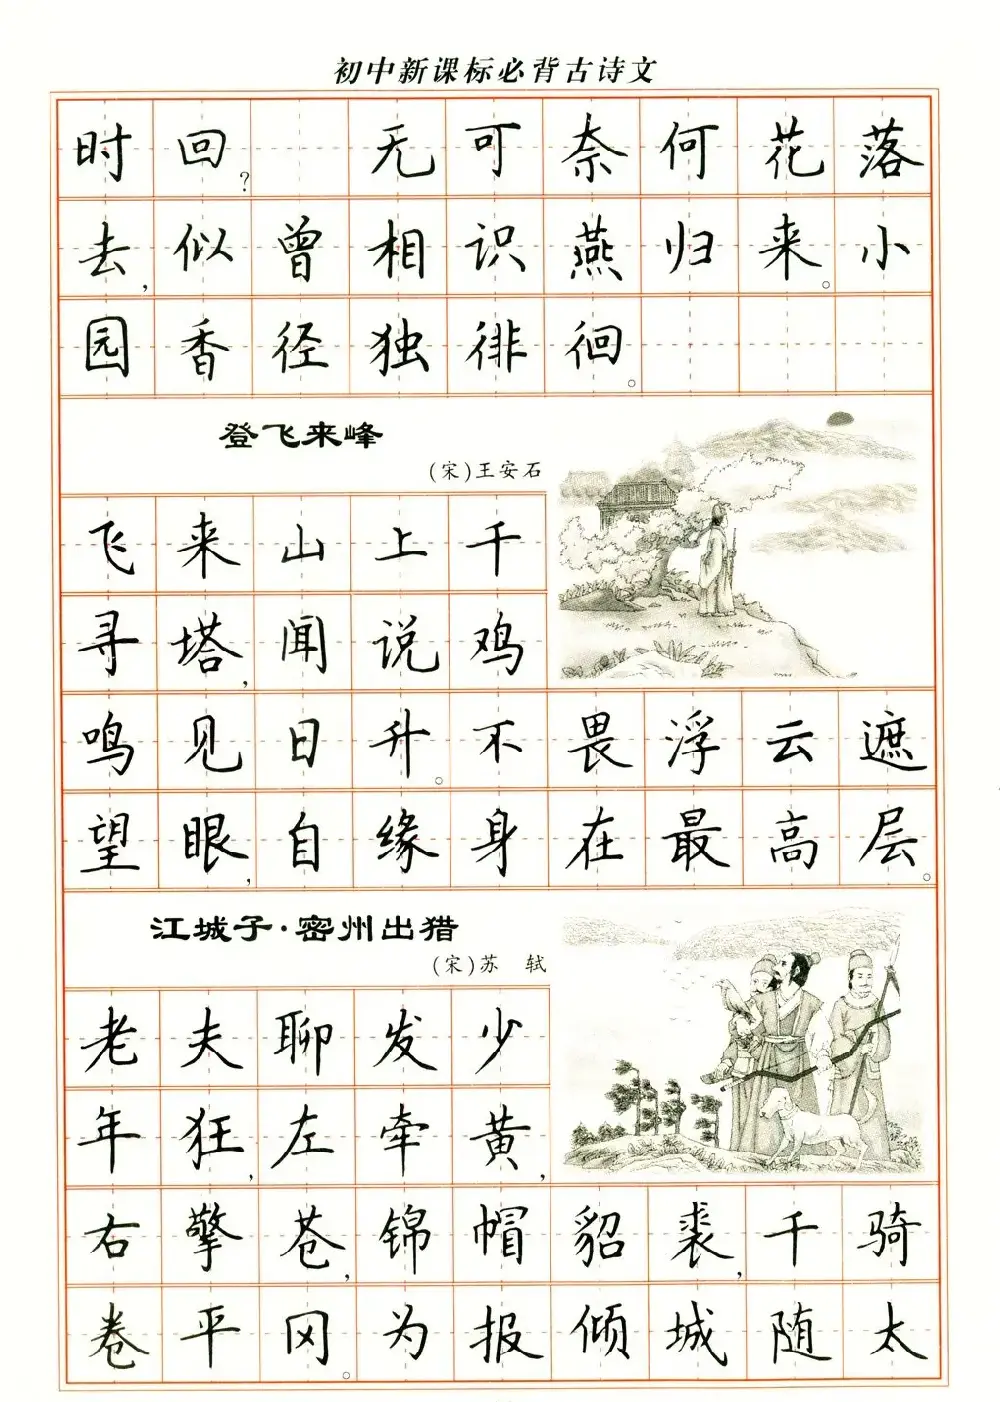 初中新课标必背古诗文
时回? 无可奈何花落
去,似曾相识燕归来。小
园香径独徘徊。
登飞来峰
(宋)王安石
飞来山上千
寻塔,闻说鸡
鸣见日升。不畏浮云遮
望眼,自缘身在最高层。
江城子·密州出猎
(宋)苏 轼
老夫聊发少
年狂,左牵黄,
右擎苍,锦帽貂裘,千骑
卷平冈。为报倾城随太